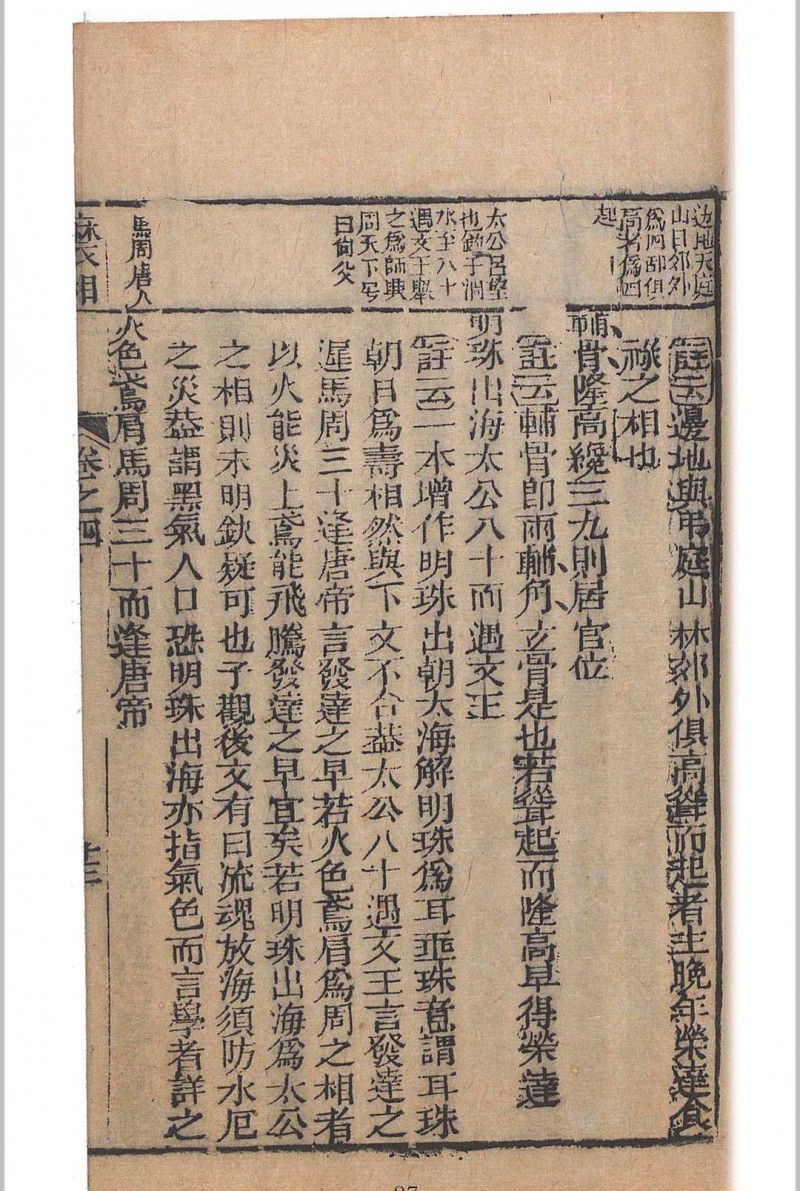 邊地天庭
山日郊外
為四部俱
高者為四
起
太公呂望
也釣于渭
水年八十
遇文王舉
之為師與
周天下号
曰尚父
馬周唐人
麻衣相
註云邊地與用庭山林郊外俱高聳而起者主晚年榮達食
祿之相也
輔骨隆高纔三九則居官位
註云輔骨卽兩輔角立骨是也若聳起而隆高早得榮達
明珠出海太公八十而遇文王
註云一本增作明珠出朝大海解明珠爲耳垂珠意謂耳珠
朝日爲壽相然與下文不合葢太公八十遇文王言發達之
遲馬周三十逢唐帝言發達之早若火色鳶肩爲周之相者
以火能炎上鳶能飛騰發達之早宜矣若明珠出海爲太公
之相則未明缺疑可也子觀後文有曰流魂放海須防水厄
之災葢謂黑氣人口恐明珠出海亦指氣色而言學者詳之
火色鳶肩馬周三十而逢唐帝
卷之四
廿三